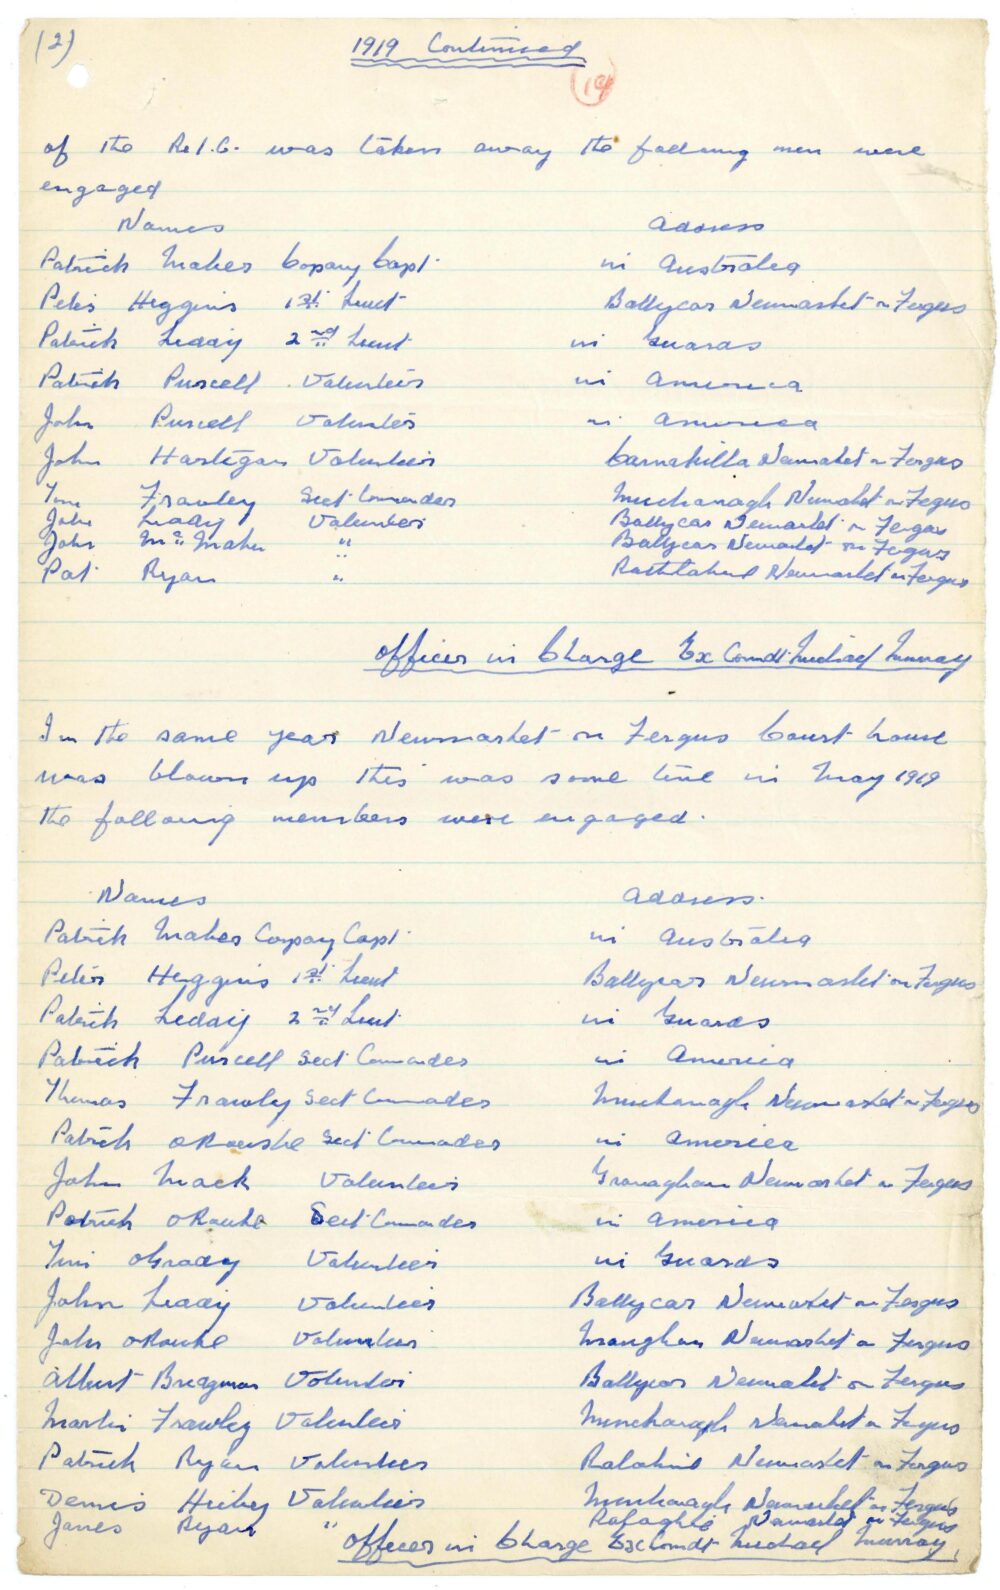 (2)
1919 Continued
19
of the R.I.C. was taken away the follung men were
engaged
Names Address
Patrick Maher Copany Capt. in Australia
Peter Higgins 1st Leut Ballycar Newmarket on Fergus
Patrick Leddy 2nd Leut in Guards
Patrick Purcell Volunteer in America
John Purcell Volunteer in America
John Hartigan Volunteer Carnakilla Newmarket on Fergus
Tim Frawley Sect Commader Newmarket on Fergus
John Leddy Volunteer Ballycar Newmarket on Fergus
John McMahn " Ballycar Newmarket on Fergus
Pat Ryan " Newmarket on Fergus
Officer in Charge Ex Comdt. Michael Murray
In the same year Newmarket on Fergus Court house
was blown up this was some time in May 1919
the following members were engaged.
Names Address.
Patrick Maher Company Capt. in Australia
Peter Higgins 1st Leut Ballycar Newmarket on Fergus
Patrick Leddy 2nd Leut in Guards
Patrick Purcell Sect Commader in America
Thomas Frawly Sect Commader Newmarket on Fergus
Patrick ORourke Sect Commader in America
John Mack Volunteer Granaghan Newmarket on Fergus
Patrick ORourke Sect Commader in America
Tim OGrady Volunteer in Guards
John Leddy Volunteer Ballycar Newmarket on Fergus
John ORourke Volunteer Newmarket on Fergus
Albert Bridgman Volunteer Ballycar Newmarket on Fergus
Martin Frawley Volunteer Newmarket on Fergus
Patrick Ryan Volunteer Ralahine Newmarket on Fergus
Dennis Hickey Volunteer Newmarket on Fergus
James Ryan " Newmarket on Fergus
Officer in Charge Ex Comdt Michael Murray